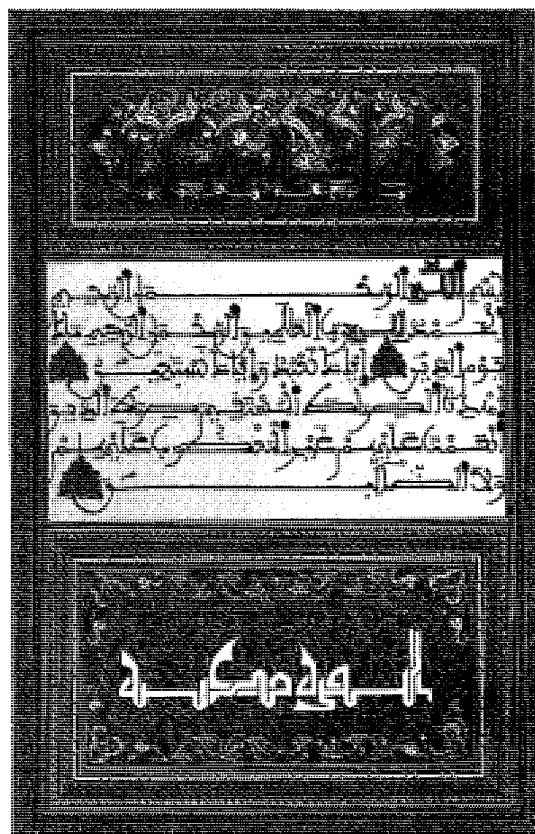 بسم الله الرحمن الرحيم
الحمد لله رب العالمين الرحمن الرحيم ملك
يوم الدين اياك نعبد واياك نستعين
اهدنا الصراط المستقيم صراط الذين
انعمت عليهم غير المغضوب عليهم
ولا الضالين